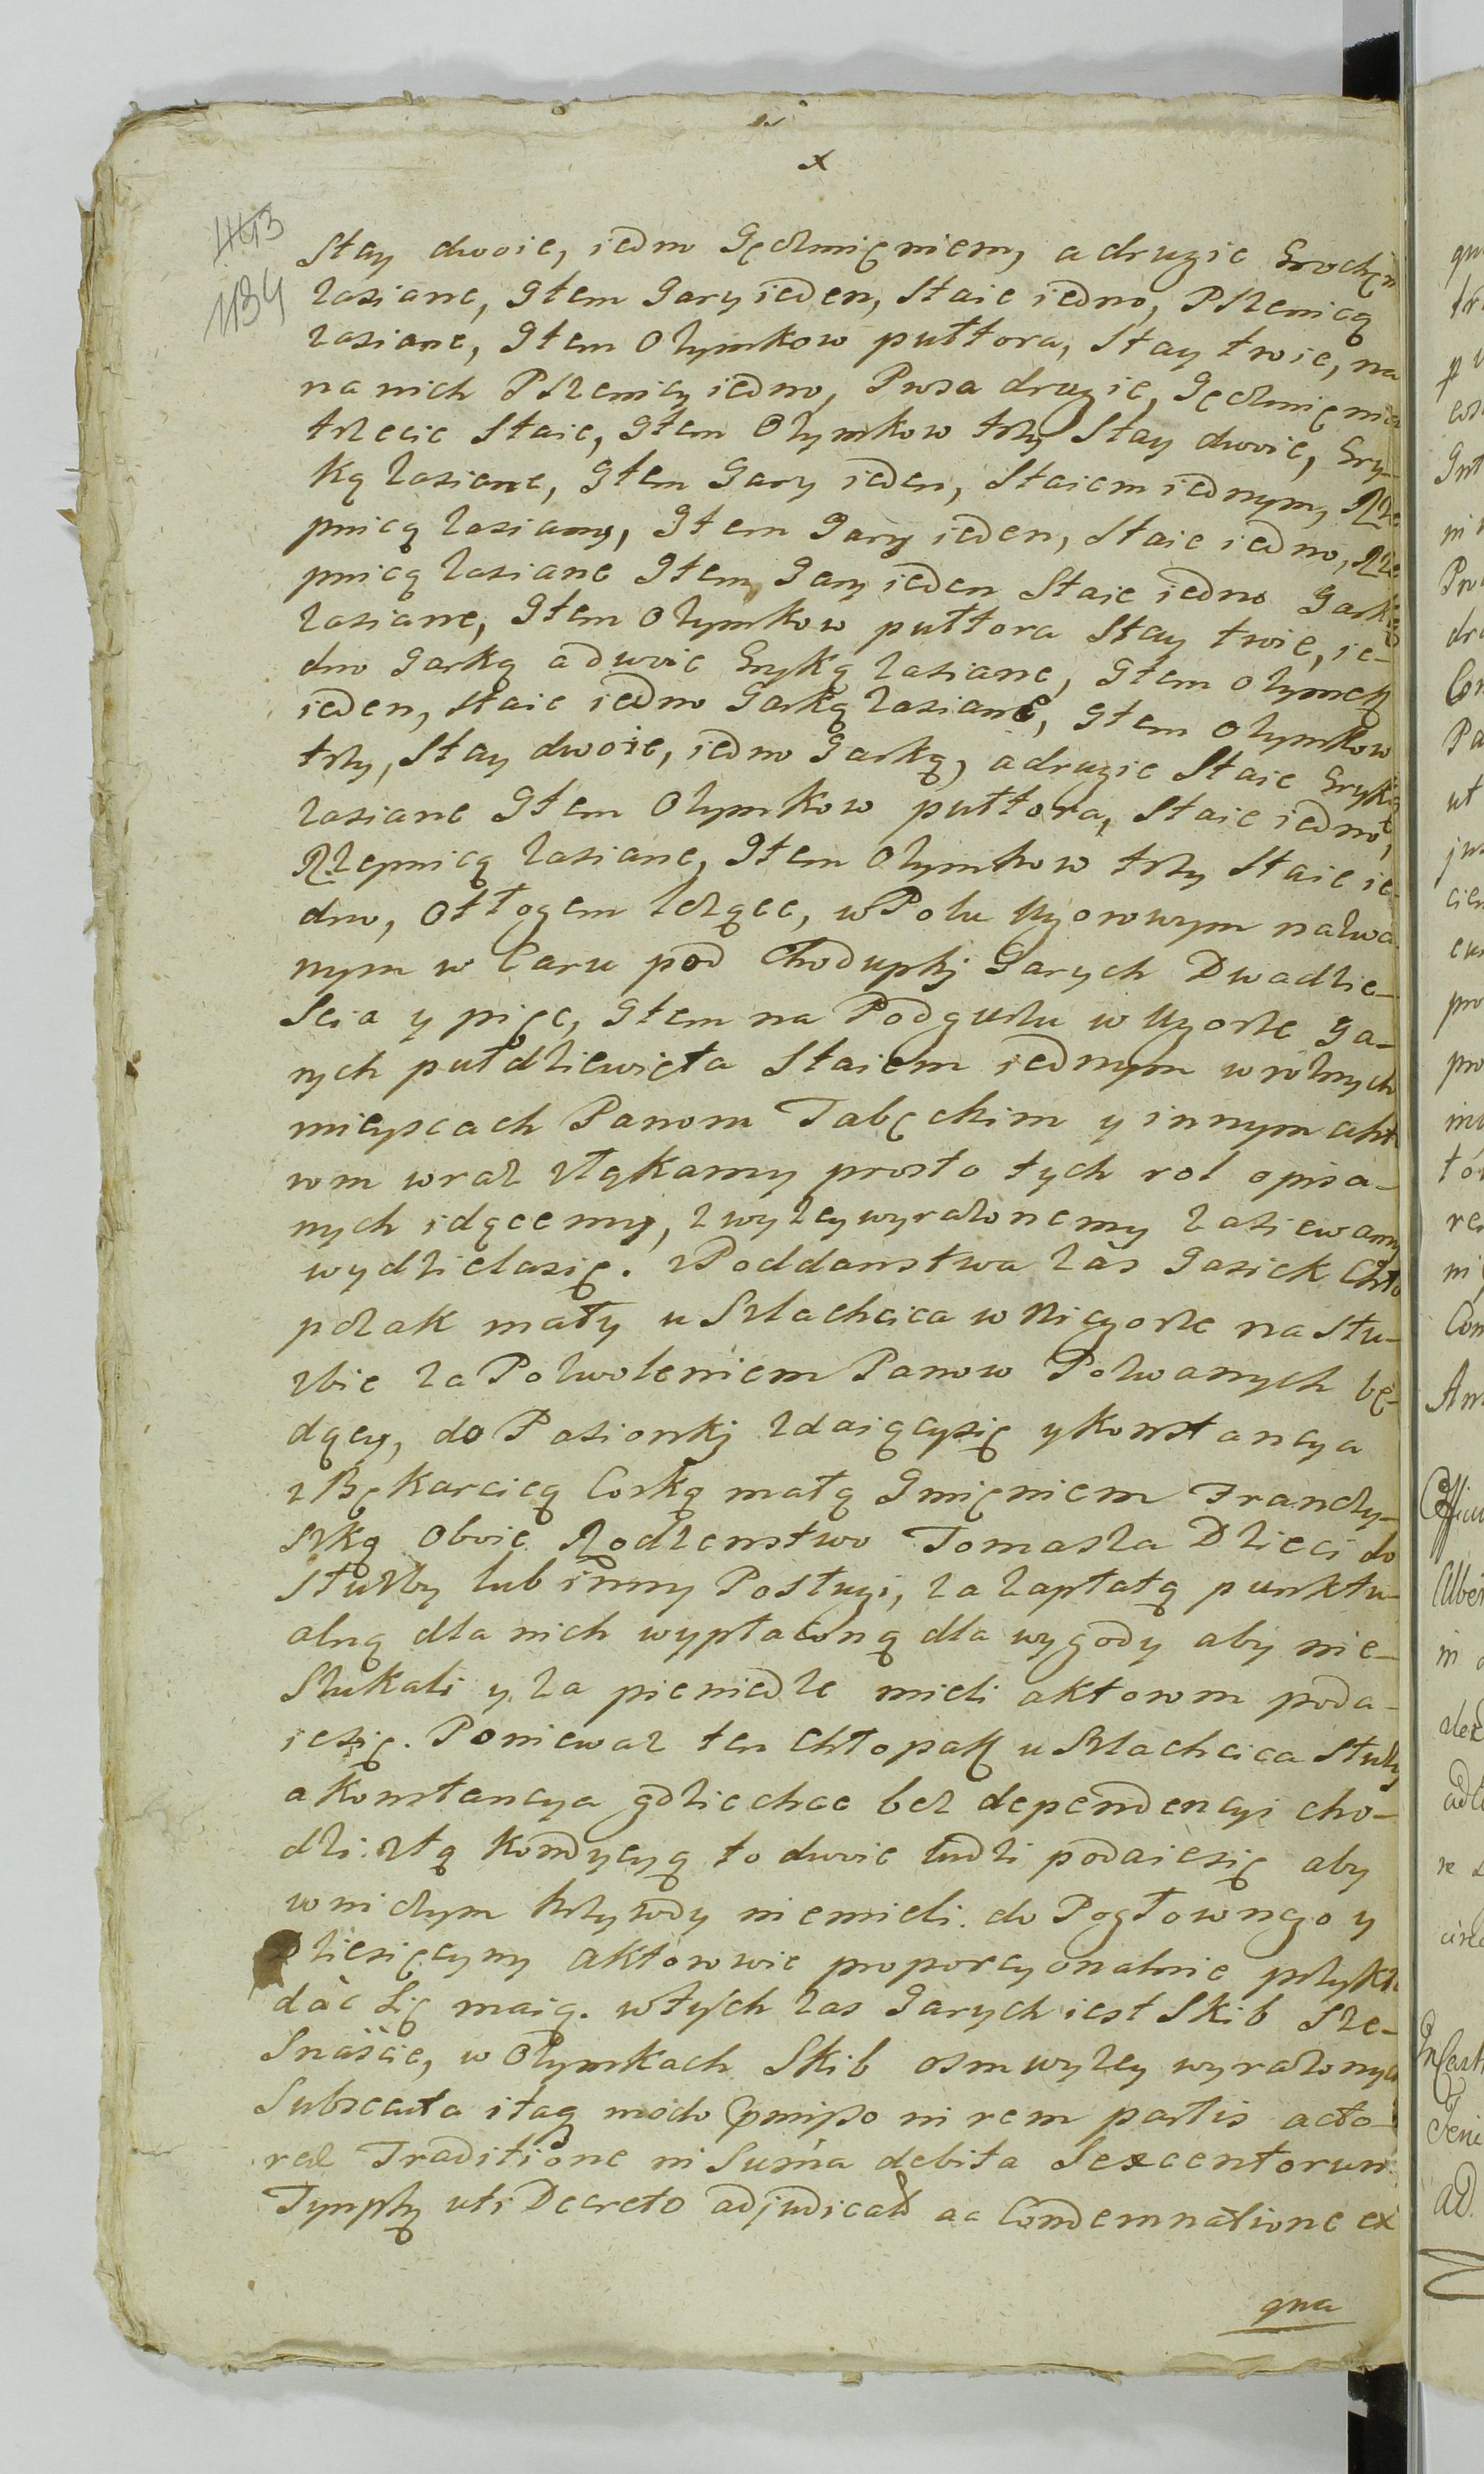 x
443
1134
Stay dwoie, iedno Jęczmięniem, a drugie Grochem
zasiane, Item Jary ieden, Staie iedno, Pszenicą
zasiane, Item Ozymkow pułtora, Stay troie, na
na nich Pszenicy iedno, Prosa drugie, Jęczmięnia
trzecie Staie, Item Ozymkow trzy Stay dwoie, Gry-
ką zasiane, Item Jary ieden, Staiem iednym, Rze
pnicą zasiany, Item Jary ieden, Staie iedno, Rze
pnicą zasiane Item, Jary ieden Staie iedno Jarką
zasiane, Item Ozymkow pułtora Stay troie, ie-
dno Jarką a dwoie Gryką zasiane, Item Ozymek
ieden, staie iedno Jarką zasiane, Item Ozymkow
trzy, Stay dwoie, iedno Jarką, a drugie Staie Gryką
zasiane Item Ozymkow pułtora, Staie iedno,
Rzepnicą zasiane, Item Ozymkow trzy Staie ie-
dno, Otłogem lezące, w Polu Ugorowym nazwa
nym w Caru pod Chodupkj Jarych Dwadzie-
scia y pięc, Item na Podgurzu w Ugorze Ja-
rych puł dziewięta Staiem iednym w roznych
mieyscach Panom Tabęckim y innym akto
rom wraz stykamy prosto tych rol opisa-
nych idącemy, zwyzeywyrazonemy zasiewamy
wydzielasię. z Poddanstwa zas Jasiek Chło
pczak mały u Szlachcica w Nieyorze na słu-
zbie za Pozwoleniem Panow Pozwanych bę-
dący, do Pasionkj zdaiącysię y Konstancya
z Bękarcicą Corką małą Imięniem Franczy-
szką oboie Rodzenstwo Tomasza Dzieci do
służby lub inny Posługi, za zapłatą punktu-
alną dla nich wypłaconą dla wygody aby nie-
szukali y za pieniedze mieli aktorom poda-
iesię. Poniewaz ten chłopak u Szlachcica służy
a Konstancya gdzie chce bez dependencyi cho-
dzi. stą kondycyą to dwoie ludzi podaiesię aby
w niczym krzywdy niemieli. do Pogłownego y
Dziesięcyny aktorowie proporcyonalnie przykła
dàc się maią. w tych zas Jarych iest Skib sze-
snàście, w Ozymkach Skib osm wyzey wyrazonych
Subsecuta itaq modo pmißo in rem partis acto-
rea Traditione in Suma debita Sexcentorum
Tynph utj Decreto adjudicat ac Condemnatione ex
qua